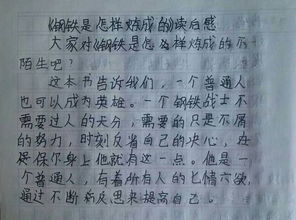 《钢铁是怎样炼成的》读后感
大家对《钢铁是怎么样炼成的》不
陌生吧?
这本书告诉我们,一个普通人
也可以成为英雄。一个钢铁战士不
需要过人的天分,需要的只是不屑
的努力,时刻反省自己的决心,在
保尔身上他就有这一点。他是一
个普通人,有着所有人的七情六欲,
通过不断的反思来提高自己。